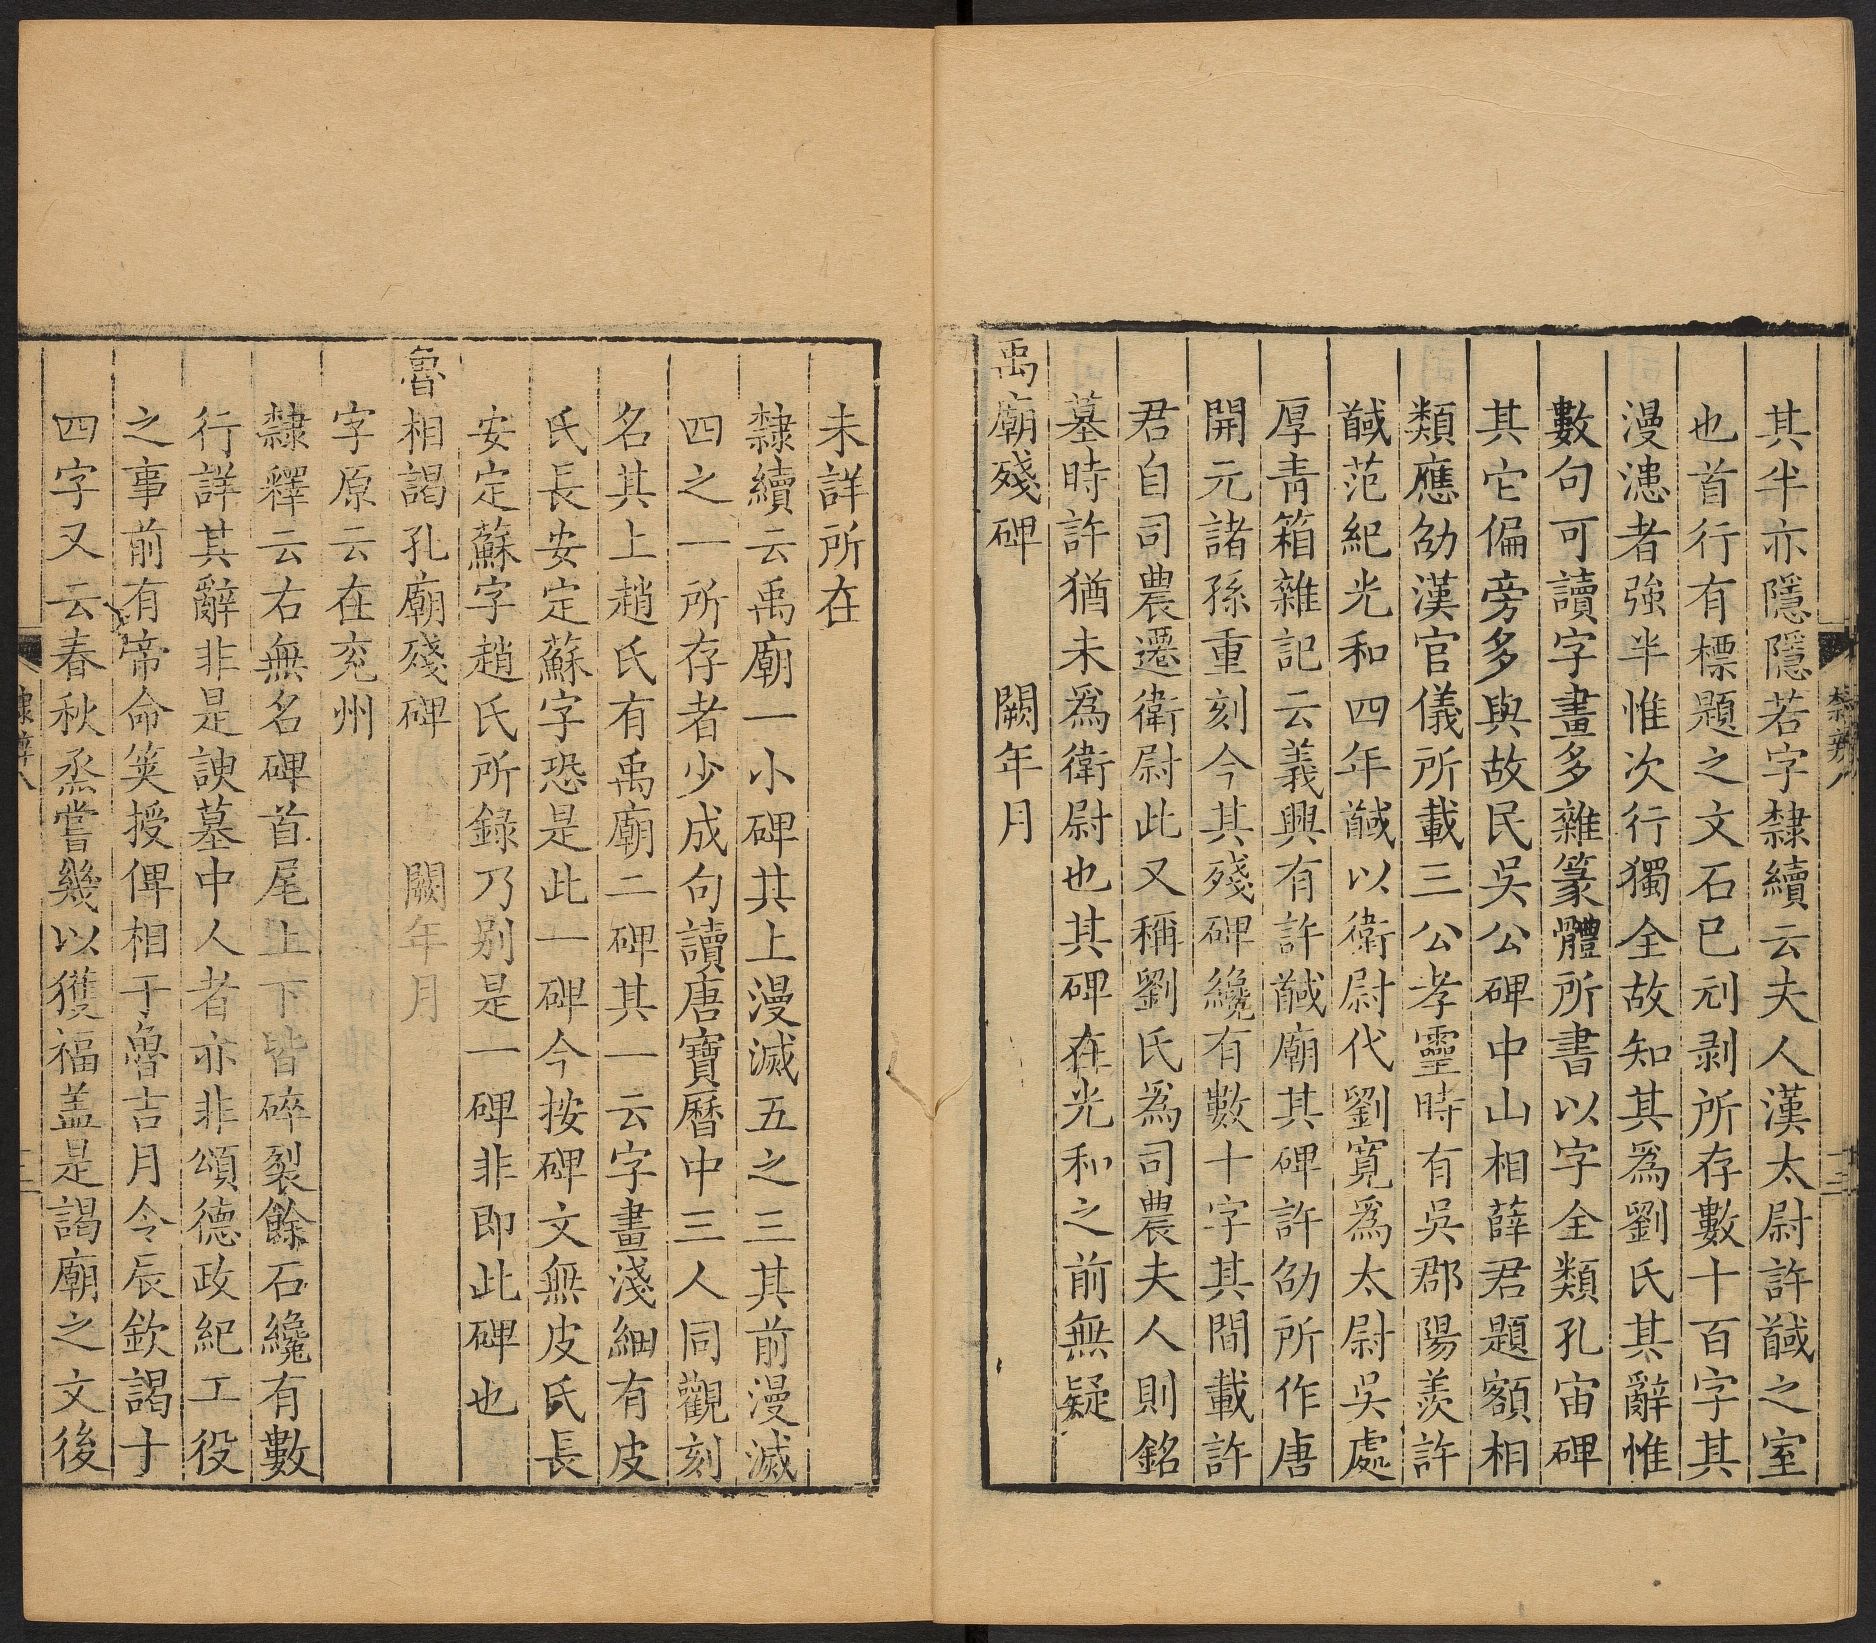 其半亦隱隱若字隸續云夫人漢太尉許戫之室
也首行有標題之文石已刓剥所存數十百字其
漫漶者強半惟次行獨全故知其爲劉氏其辭惟
數句可讀字畫多雜篆體所書以字全類孔宙碑
其它偏旁多與故民吳公碑中山相薛君題額相
類應劭漢官儀所載三公孝靈時有吳郡陽羨許
戫范紀光和四年戫以衛尉代劉寬爲太尉吳處
厚青箱雜記云義興有許戫廟其碑許劭所作唐
開元諸孫重刻今其殘碑纔有數十字其間載許
君自司農遷衛尉此又稱劉氏爲司農夫人則銘
墓時許猶未爲衛尉也其碑在光和之前無疑
禹廟殘碑 闕年月
未詳所在
隸續云禹廟一小碑其上漫滅五之三其前漫滅
四之一所存者少成句讀唐寶曆中三人同觀刻
名其上趙氏有禹廟二碑其一云字畫淺細有皮
氏長安定蘇字恐是此一碑今按碑文無皮氏長
安定蘇字趙氏所錄乃别是一碑非即此碑也
魯相謁孔廟殘碑 闕年月
字原云在兖州
隸釋云右無名碑首尾上下皆碎裂餘石纔有數
行詳其辭非是諛墓中人者亦非頌德政紀工役
之事前有帝命筴授俾相于魯吉月令辰欽謁十
四字又云春秋烝嘗幾以獲福盖是謁廟之文後